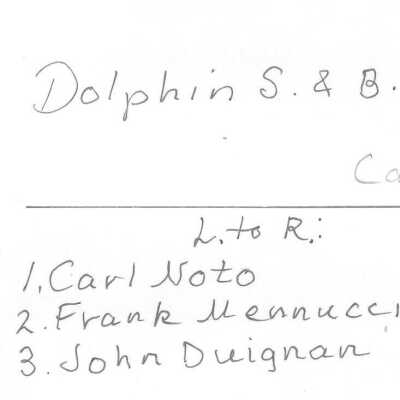 Dolphin S. & B.
Ca
L. to R.:
1. Carl Noto
2. Frank Mennucci
3. John Duignan